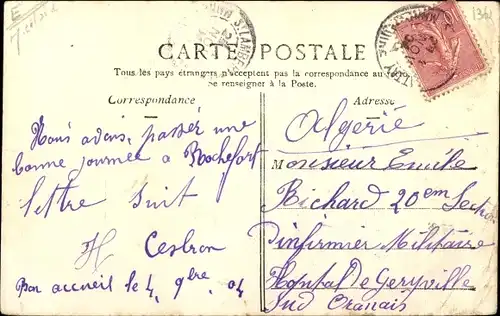 CARTE POSTALE
Tous les pays étrangers n'acceptent pas la correspondance au
Se renseigner à la Poste.
Correspondance
Adresse
Nous avons passer une
bonne journee a Rochefort
lettre suit
H Cesbron
Bon accueil le 4 9bre 04
Algerie
Monsieur Emile
Richard 20em Section
infirmier Militaire
Hopital De Geryville
Sud Oranais